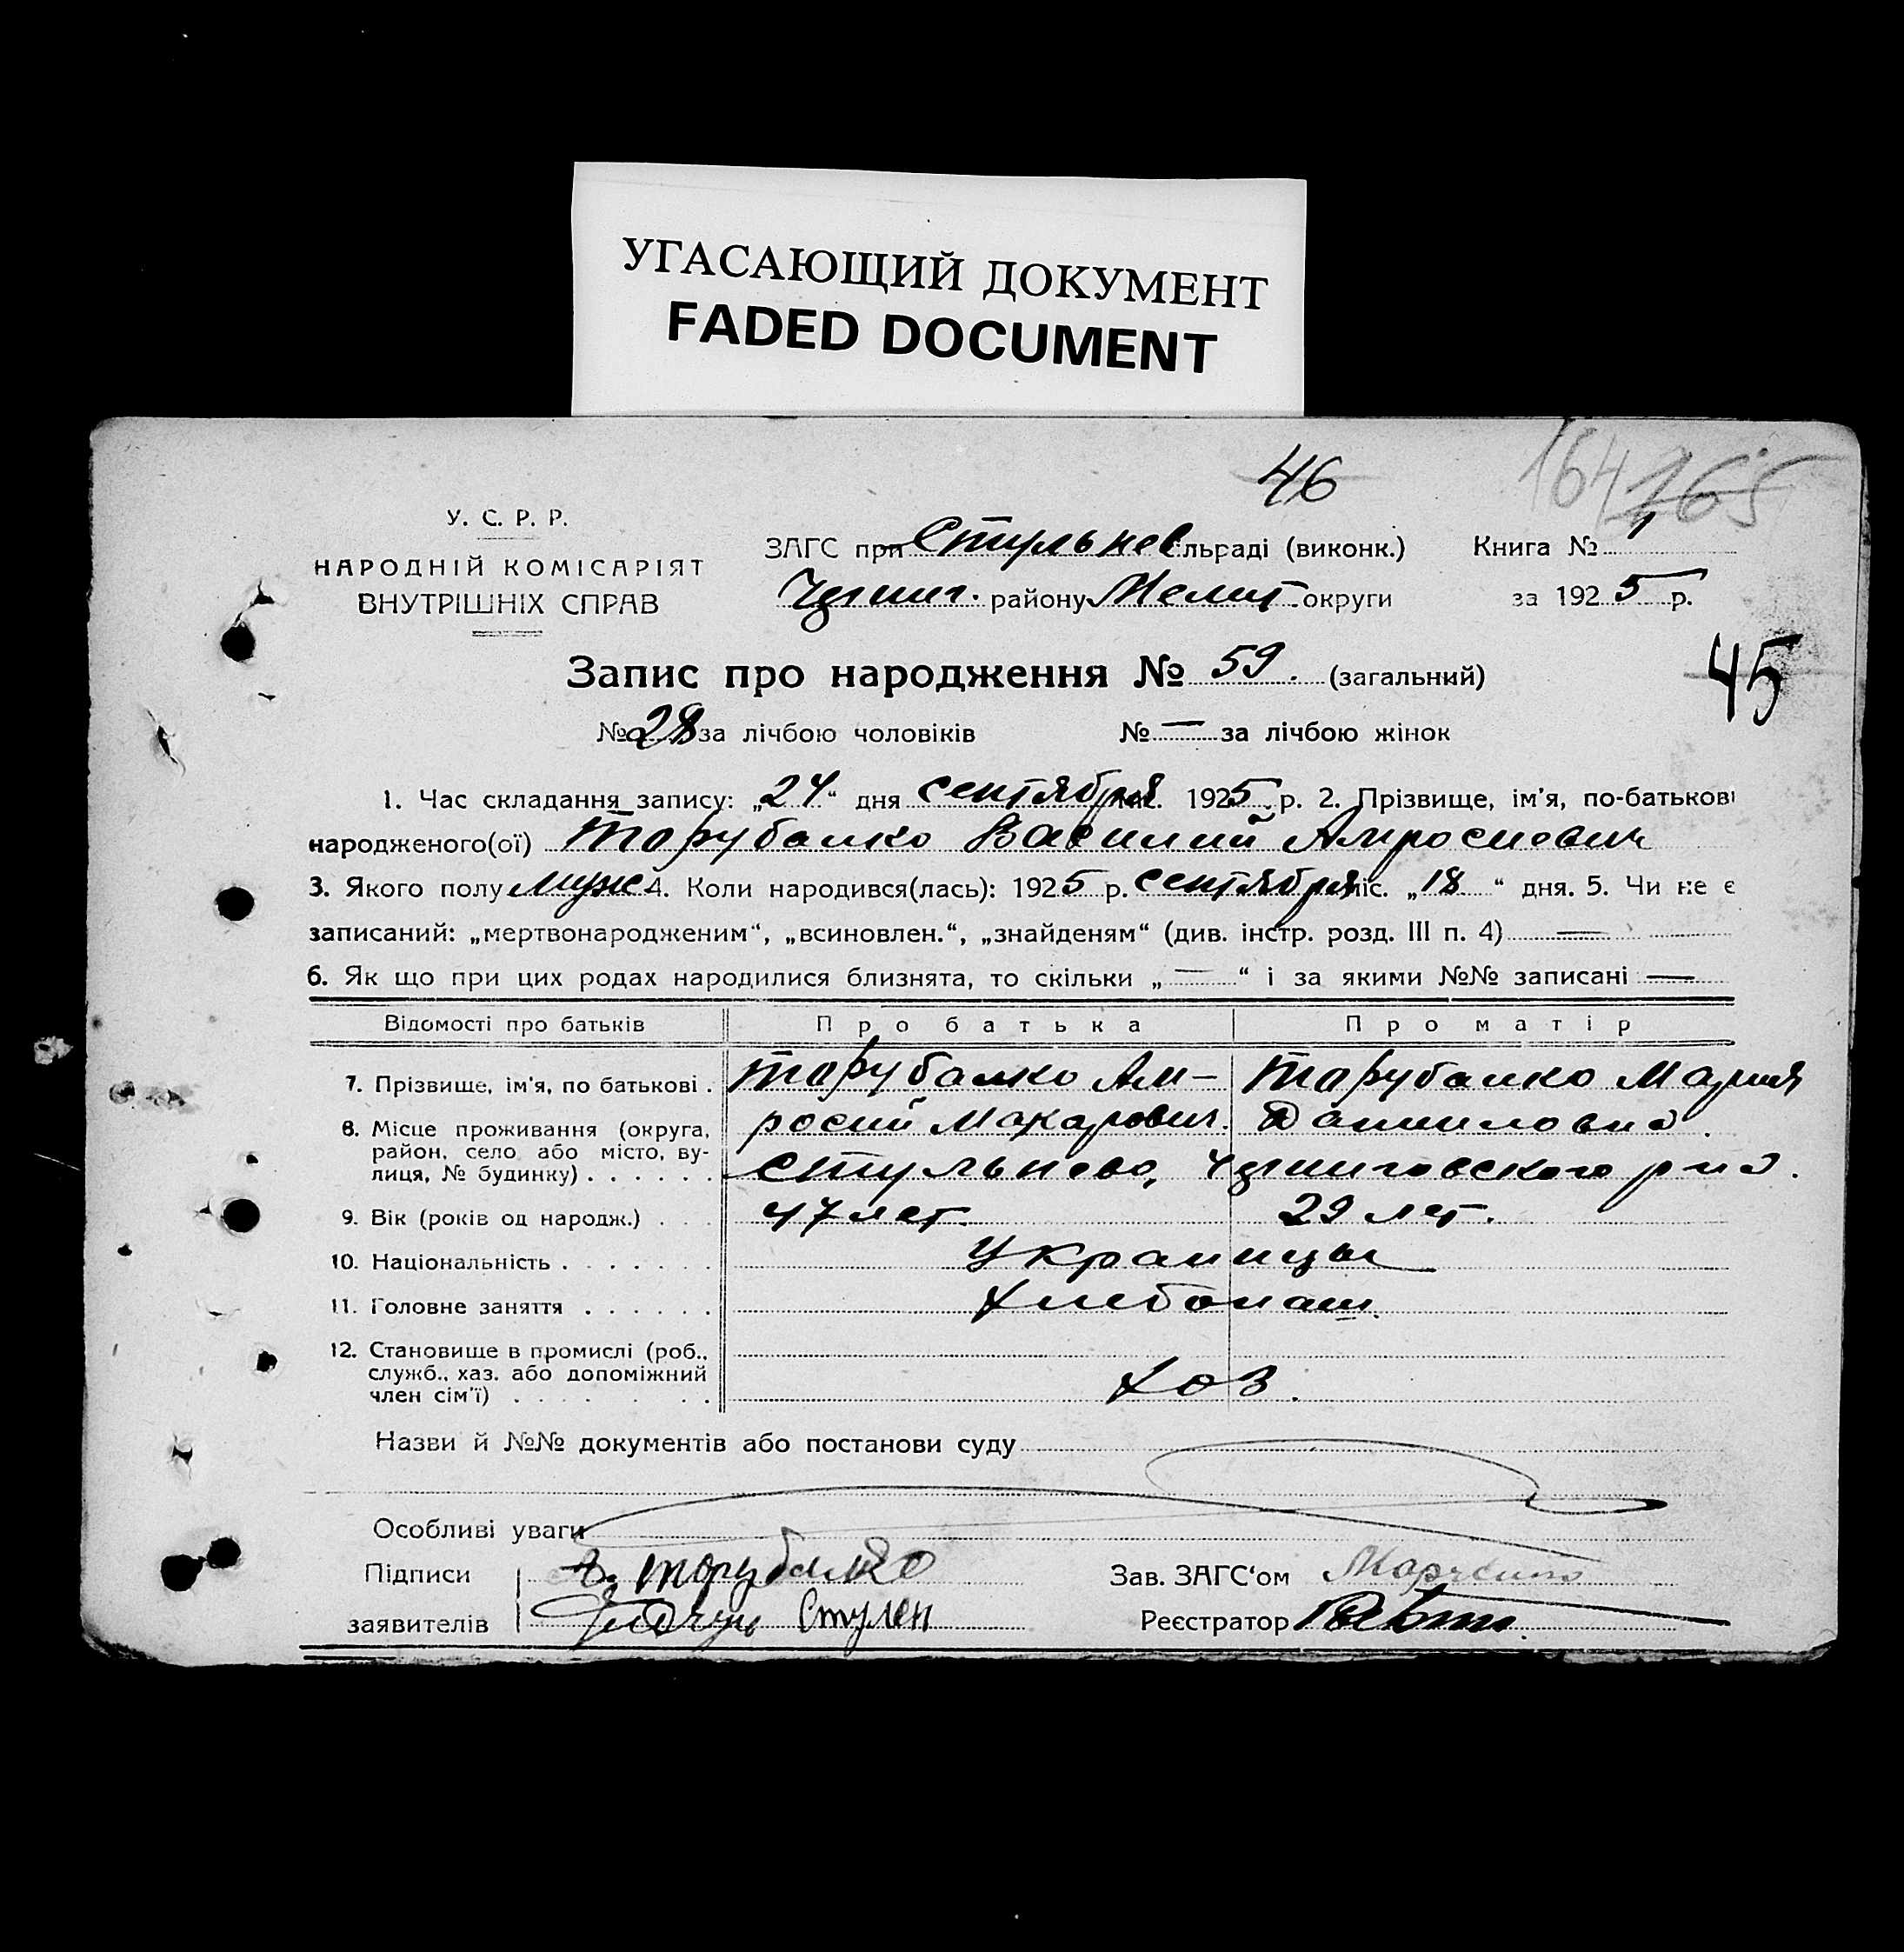 УГАСАЮЩИЙ ДОКУМЕНТ
FADED DOCUMENT
46
164 165
У. С. Р. Р.
НАРОДНІЙ КОМІСАРІЯТ
ВНУТРІШНІХ СПРАВ
ЗАГС при Стульнев сільраді (виконк.)
Книга № 1
Черниг. району Мелит. округи
за 1925 р.
45
Запис про народження № 59. (загальний)
№ 28 за лічбою чоловіків № — за лічбою жінок
1. Час складання запису: „24“ дня сентября міс. 1925 р. 2. Прізвище, ім'я, по-батькові
народженого(ої) Торубалко Василий Амросиевич
3. Якого полу муж. 4. Коли народився(лась): 1925 р. сентября міс. „18“ дня. 5. Чи не є
записаний: „мертвонародженим“, „всиновлен.“, „знайденям“ (див. інстр. розд. III п. 4) —
6. Як що при цих родах народилися близнята, то скільки „—“ і за якими №№ записані —
Відомості про батьків Про батька Про матір
7. Прізвище, ім'я, по батькові . Торубалко Ам- Торубалко Мария
росий Макарович. Данииловна.
8. Місце проживання (округа,
район, село або місто, ву-
лиця, № будинку) . . . . . . Стульнево, Черниговского р-на.
9. Вік (років од народж.) . . . 47 лет. 29 лет.
10. Національність . . . . . . . Украинцы
11. Головне заняття . . . . . . Хлебопаш.
12. Становище в промислі (роб.,
служб., хаз. або допоміжний
член сім'ї) . . . . . . . Хоз.
Назви й №№ документів або постанови суду
Особливі уваги
Підписи Торубалко
Зав. ЗАГС'ом
заявителів Стулен
Реєстратор